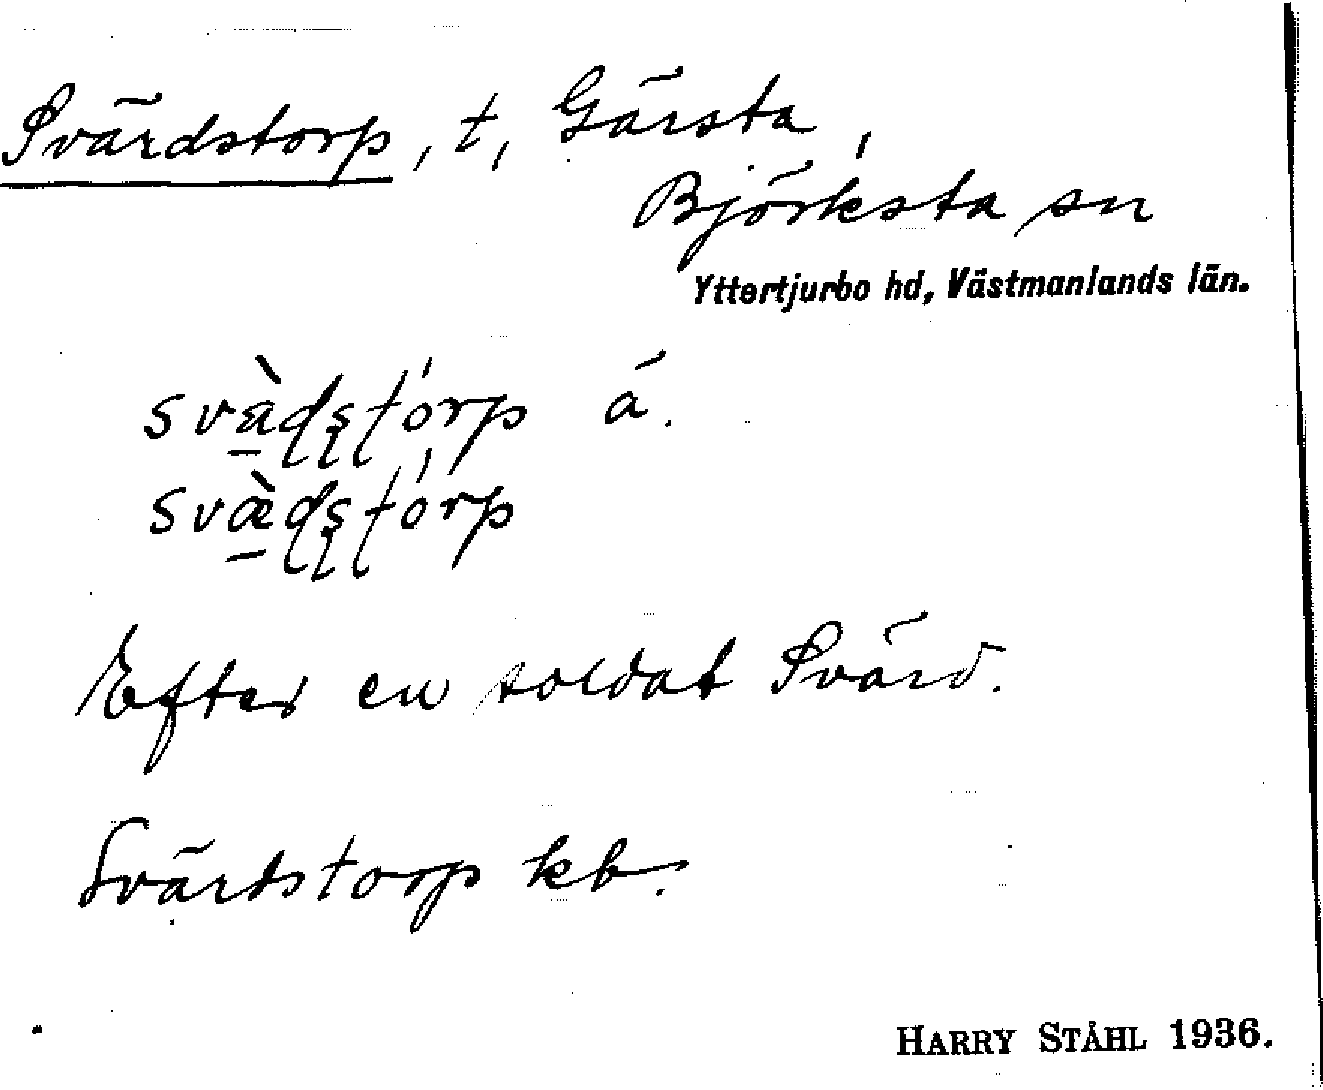 Svärdstorp, t, Gärsta,
Björksta sn
Yttertjurbo hd, Västmanlands län.
svà̠ɖʂʈórp á.
svæ̠̀ɖʂʈórp
Efter en soldat Svärd.
Svärdstorp kb.
HARRY STÅHL 1936.